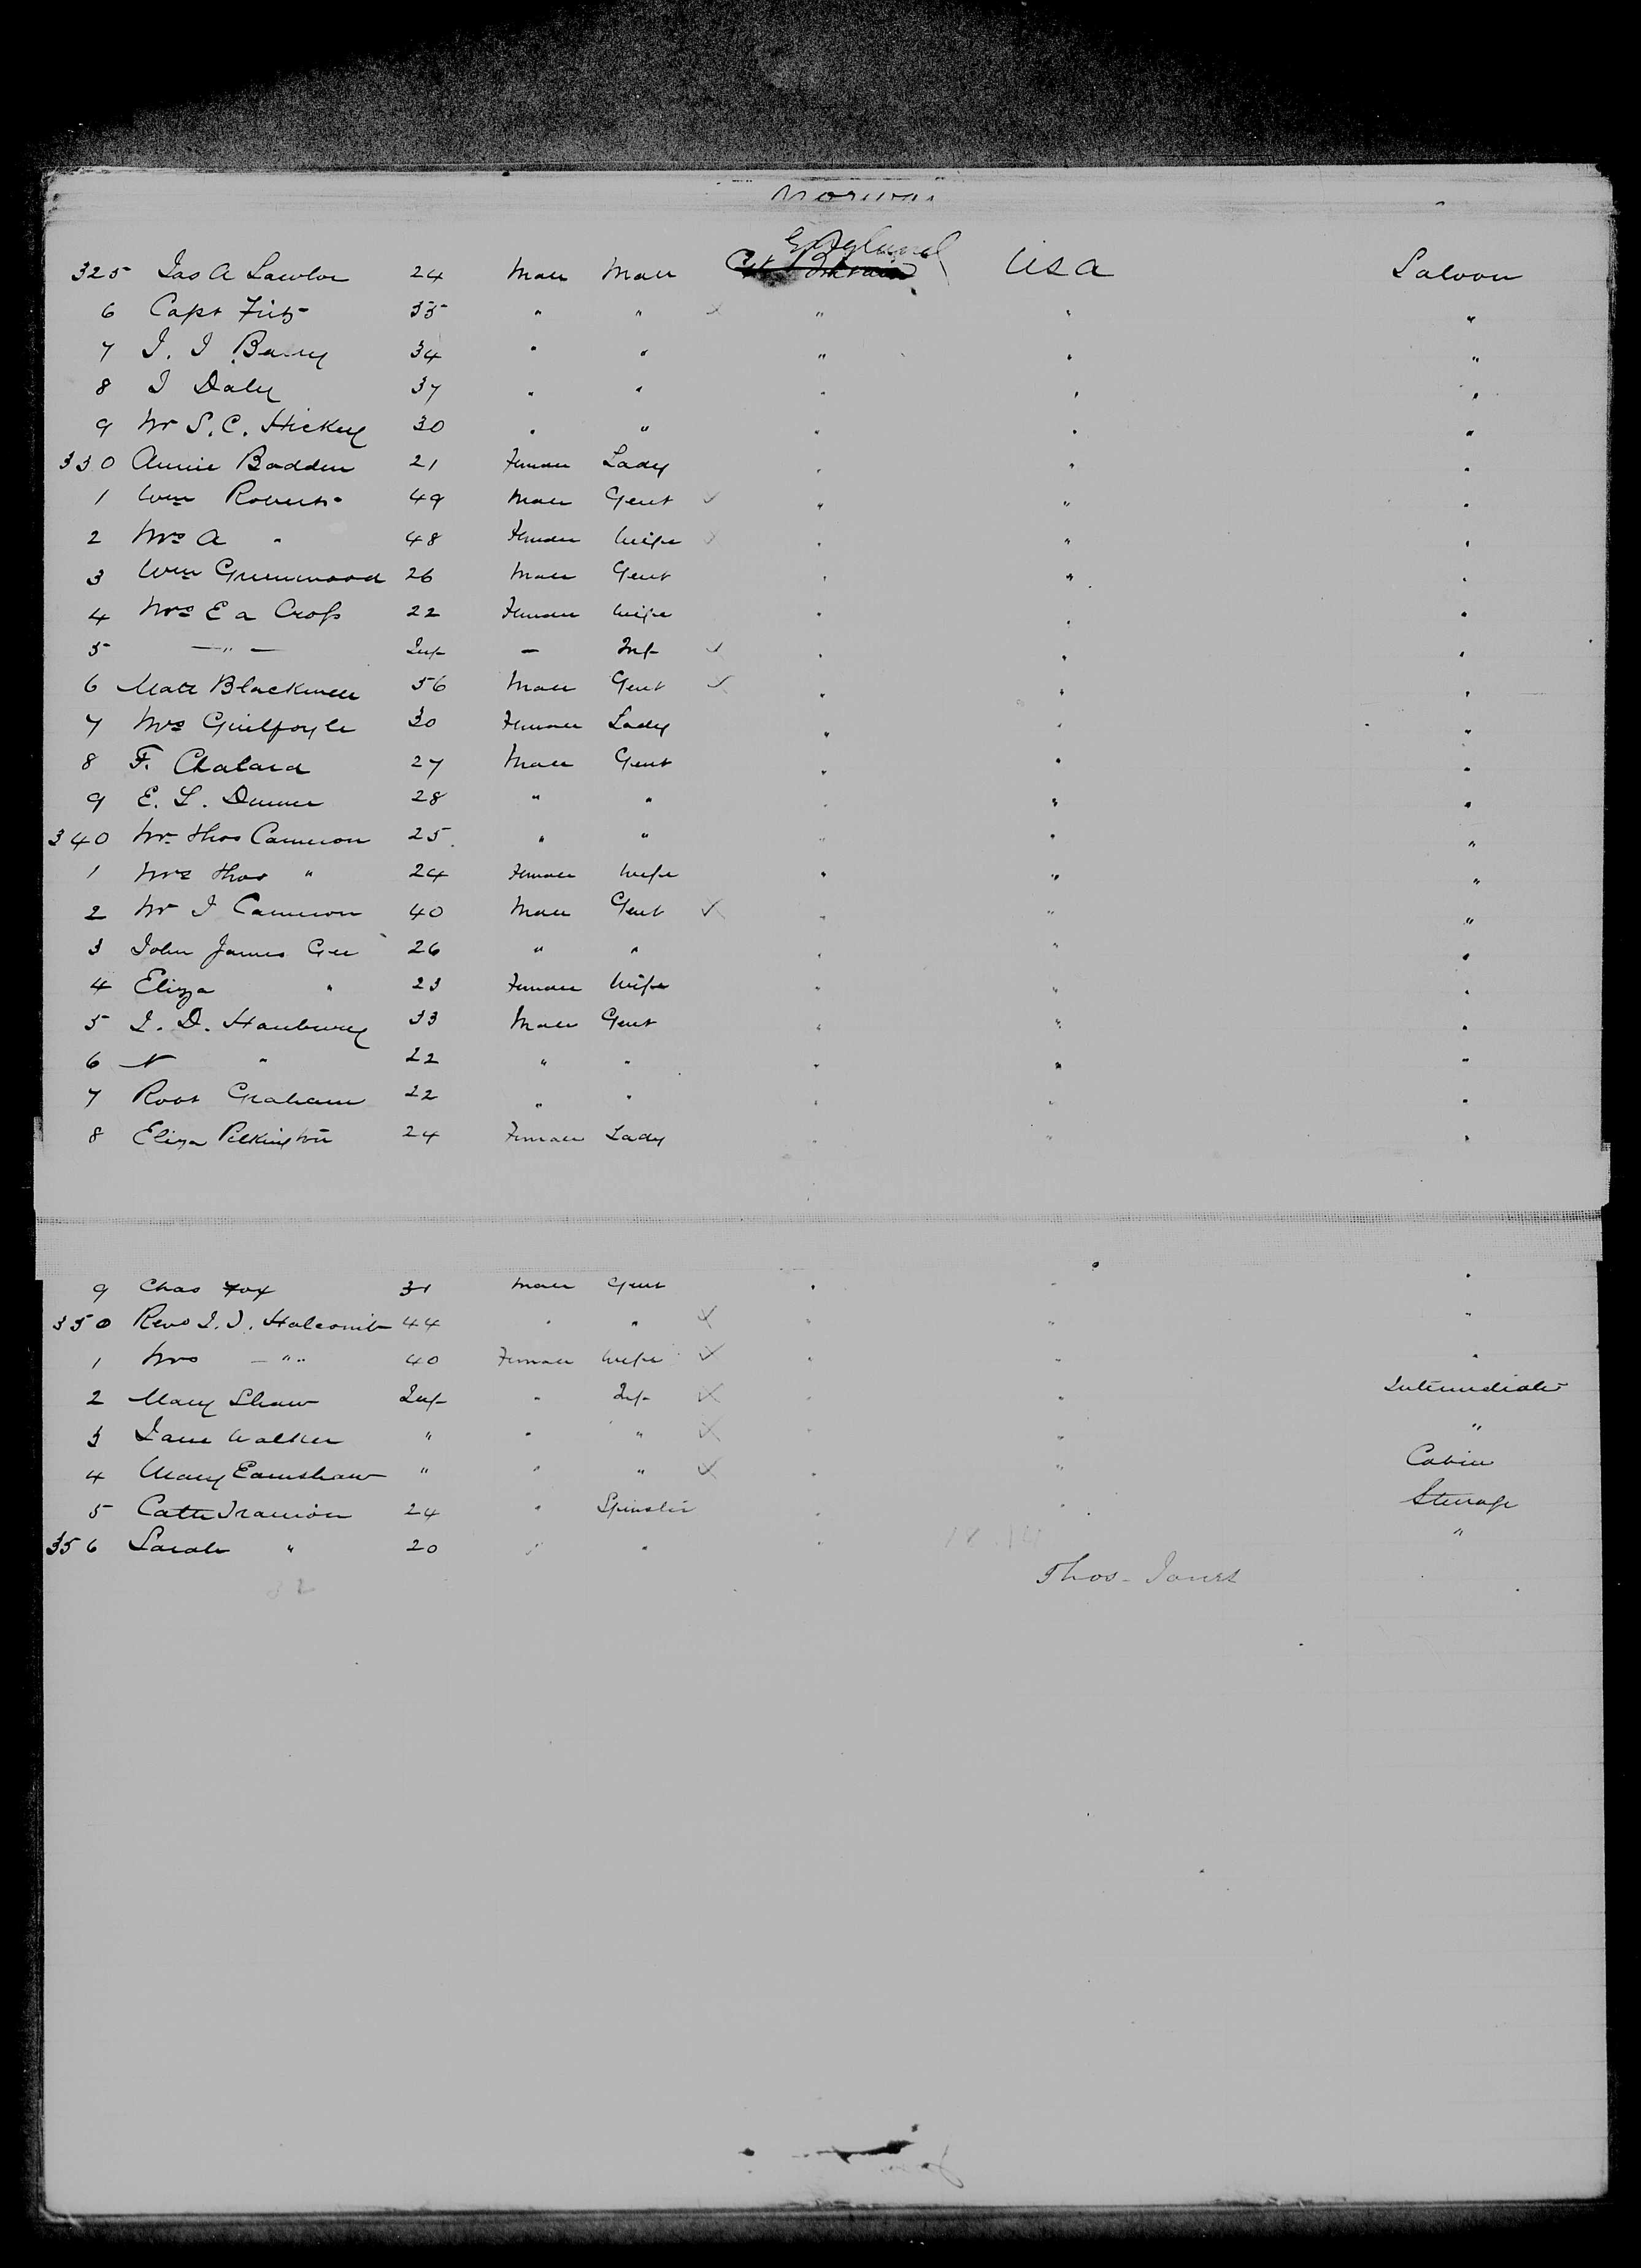 England
325 Jas A Lawlor 24 Male Male Gt Britain USA Saloon
6 Capt Fitz 35 " " " " "
7 J. J Barry 34 " " " " "
8 J Daly 37 " " " " "
9 Mr S. C. Hickey 30 " " " " "
330 Annie Bodden 21 Female Lady " " "
1 Wm Roberts 49 Male Gent " " "
2 Mrs A " 48 Female Wife " " "
3 Wm Greenwood 26 Male Gent " " "
4 Mrs E a Cross 22 Female Wife " " "
5 — " — Inf — Inf " " "
6 Matt Blackwell 56 Male Gent " " "
7 Mrs Guilfoyle 30 Female Lady " " "
8 F. Chalard 27 Male Gent " " "
9 E. L. Denner 28 " " " " "
340 Mr Thos Cameron 25 " " " " "
1 Mrs Thos " 24 Female Wife " " "
2 Mr J Cameron 40 Male Gent " " "
3 John James Gee 26 " " " " "
4 Eliza " 23 Female Wife " " "
5 J. D. Hanbury 33 Male Gent " " "
6 N " 22 " " " " "
7 Robt Graham 22 " " " " "
8 Eliza Pilkington 24 Female Lady " " "
9 Chas Fox 31 Male Gent " " "
350 Revd J. J. Holcomb 44 " " " " "
1 Mrs — " " 40 Female Wife " " "
2 Mary Shaw Inf " Inf " " Intermediate
3 Jane Walker " " " " " "
4 Mary Earnshaw " " " " " Cabin
5 Cathe 24 " Spinster " " Steerage
356 Sarah " 20 " " " "
Thos Jones